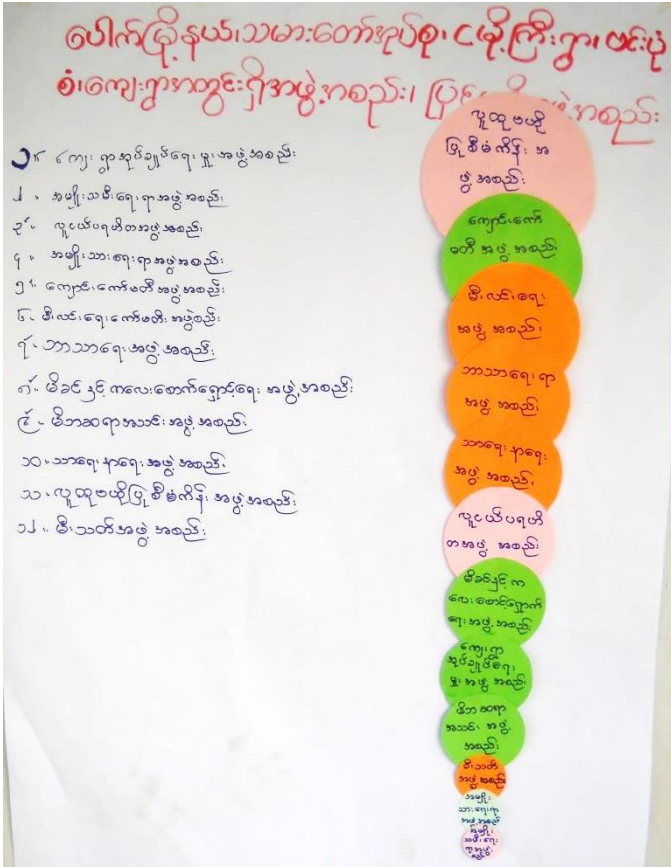 ပေါက်မြို့နယ်၊သမားတော်အုပ်စု၊ငမို့ကြီးရွာ၊ဗင်းပုံ
စံ၊ကျေးရွာအတွင်းရှိအဖွဲ့အစည်း၊ ပြင်
အစည်း
၁။ ကျေးရွာအုပ်ချုပ်ရေးမှူးအဖွဲ့အစည်း
၂။ အမျိုးသမီးရေးရာအဖွဲ့အစည်း
၃။ လူငယ်ပရဟိတအဖွဲ့အစည်း
၄။ အမျိုးသားရေးရာအဖွဲ့အစည်း
၅။ ကျောင်းကော်မတီအဖွဲ့အစည်း
၆။ မီးလင်းရေးကော်မတီအဖွဲ့စည်း
၇။ ဘာသာရေးအဖွဲ့အစည်း
၈။ မိခင်နှင့်ကလေးစောက်ရှောင့်ရေး အဖွဲ့အစည်း
၉။ မိဘဆရာအသင်းအဖွဲ့အစည်း
၁၀။ သာရေးနာရေးအဖွဲ့အစည်း
၁၁။ လူထုဗဟိုပြုစီမံကိန်းအဖွဲ့အစည်း
၁၂။ မီးသတ်အဖွဲ့အစည်း
လူထုဗဟို
ပြုစီမံကိန်းအ
ဖွဲ့အစည်း
ကျောင်းကော်
မတီအဖွဲ့အစည်း
မီးလင်းရေး
အဖွဲ့အစည်း
ဘာသာရေးရာ
အဖွဲ့အစည်း
သာရေးနာရေး
အဖွဲ့အစည်း
လူငယ်ပရဟိ
တအဖွဲ့အစည်း
မိခင်နှင့်က
လေးစောင့်ရှောက်
ရေးအဖွဲ့အစည်း
ကျေးရွာ
အုပ်ချုပ်ရေး
မှူးအဖွဲ့အစည်း
မိဘဆရာ
အသင်းအဖွဲ့
အစည်း
မီးသတ်
အဖွဲ့အစည်း
အမျိုး
သားရေးရာ
အဖွဲ့အစည်း
အမျိုး
သမီးရေး
ရာအဖွဲ့